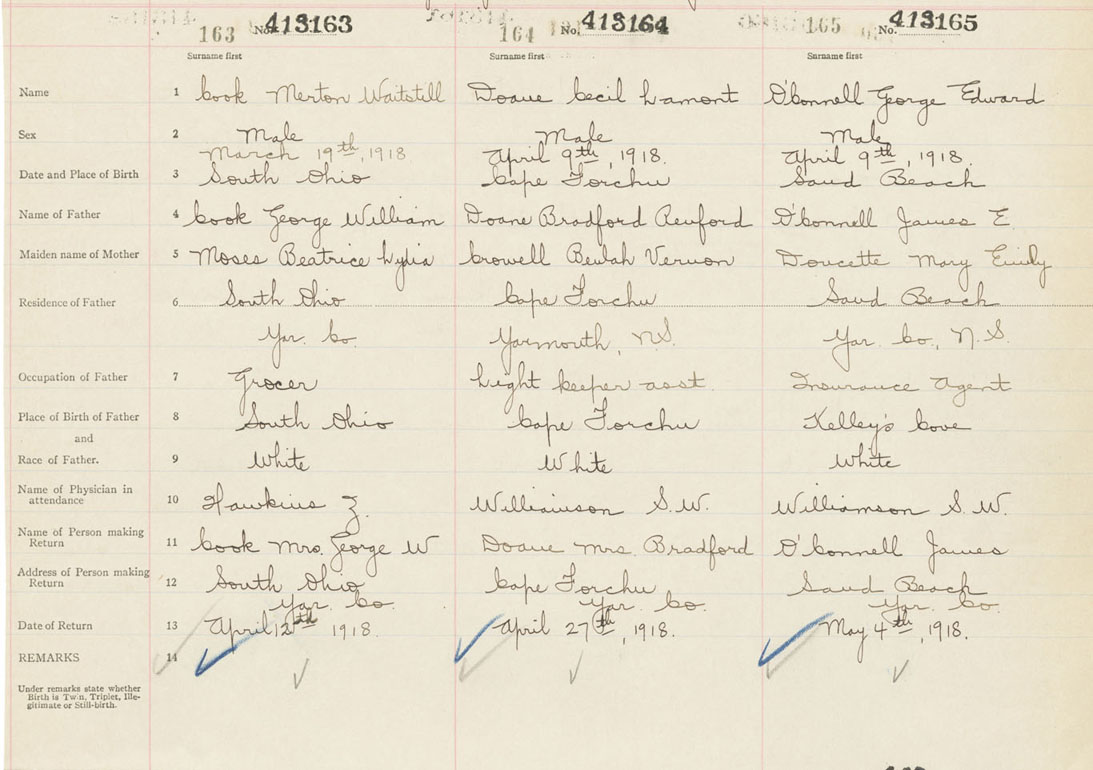 163 No. 413163 164 No. 413164 165 No. 413165
Surname first Surname first Surname first
Name 1 Cook Merton Waitstill Doane Cecil Lamont O'Connell George Edward
Sex 2 Male Male Male
March 19th, 1918 April 9th, 1918. April 9th, 1918.
Date and Place of Birth 3 South Ohio Cape Forchu Sand Beach
Name of Father 4 Cook George William Doane Bradford Renford O'Connell James E.
Maiden name of Mother 5 Moses Beatrice Lydia Crowell Beulah Vernon Doucette Mary Emily
Residence of Father 6 South Ohio Cape Forchu Sand Beach
Yar. Co. Yarmouth, N.S. Yar. Co., N.S.
Occupation of Father 7 Grocer Light keeper asst. Insurance Agent
Place of Birth of Father 8 South Ohio Cape Forchu Kelley's Cove
and
Race of Father. 9 White White White
Name of Physician in
attendance 10 Hawkins Z. Williamson S.W. Williamson S.W.
Name of Person making
Return 11 Cook Mrs. George W Doane Mrs. Bradford O'Connell James
Address of Person making
Return 12 South Ohio Cape Forchu Sand Beach
Yar. Co. Yar. Co. Yar. Co.
Date of Return 13 April 12th 1918. April 27th, 1918. May 4th, 1918.
REMARKS 14
Under remarks state whether
Birth is Twin, Triplet, Ille-
gitimate or Still-birth.